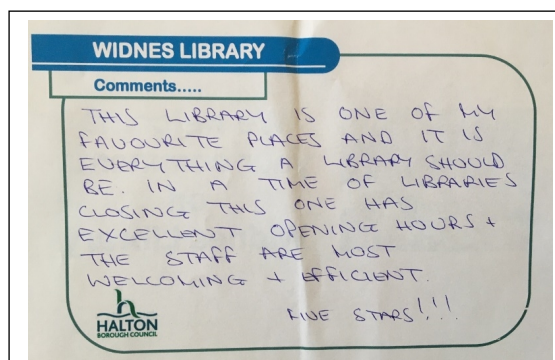 WIDNES LIBRARY
Comments.....
THIS LIBRARY IS ONE OF MY
FAVOURITE PLACES AND IT IS
EVERYTHING A LIBRARY SHOULD
BE. IN A TIME OF LIBRARIES
CLOSING THIS ONE HAS
EXCELLENT OPENING HOURS +
THE STAFF ARE MOST
WELCOMING + EFFICIENT.
FIVE STARS!!!
HALTON
BOROUGH COUNCIL